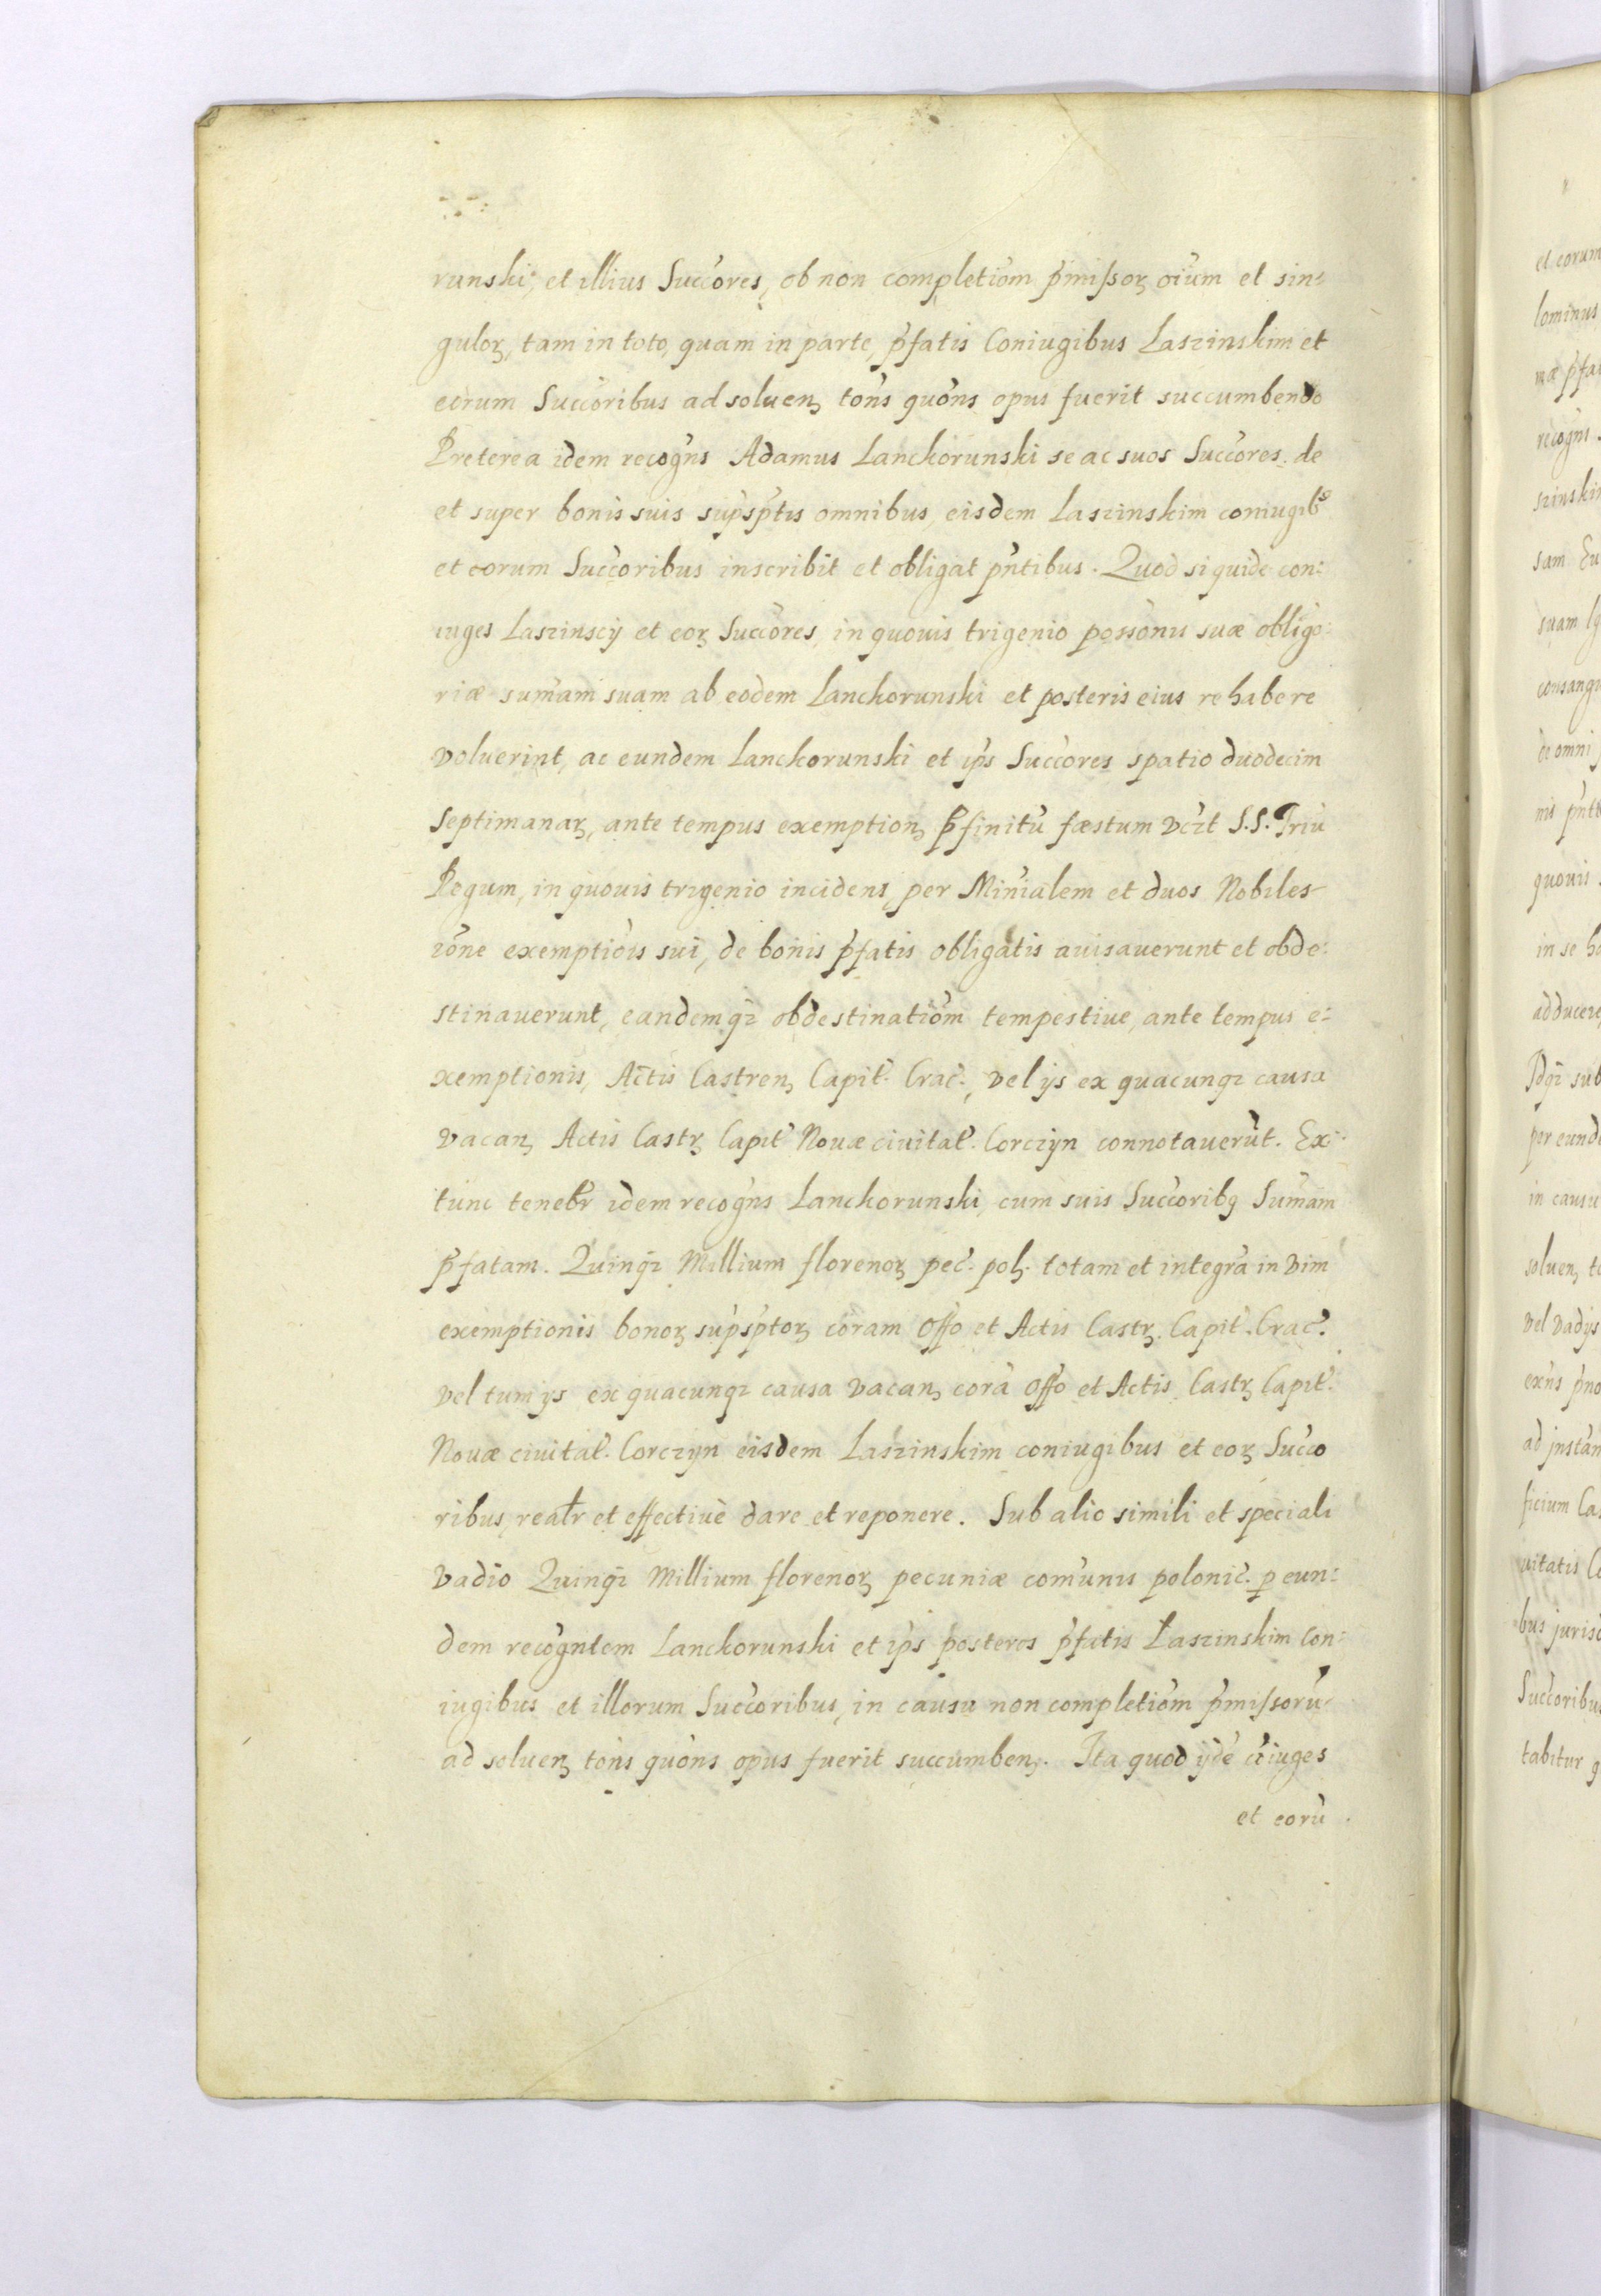 runski, et illius Succ̃ores, ob non completiõm p̃missoꝝ oĩum et sin:
guloꝝ, tam in toto, quam in parte, p̃fatis Coniugibus Laszinskim et
eorum Succ̃oribus ad soluenꝫ toñs quoñs opus fuerit succumbendo
Preterea idem recog̃ns Adamus Lanckorunski se ac suos Succ̃ores. de
et super bonis suis sup̃sp̃tis omnibus, eisdem Laszinskim coniugib9
et eorum Succ̃oribus inscribit et obligat p̃ntibus. Quod siquidẽ con:
iuges Laszinscÿ et eoꝝ Succ̃ores, in quouis trigenio possõnis suæ obligõ:
riæ sum̃am suam ab eodem Lanckorunski et posteris eius rehabere
voluerint, ac eundem Lanckorunski et ip̃s Succ̃ores spatio duodecim
septimanaꝝ, ante tempus exemptionꝫ p̃finitũ fæstum vc̃zt S.S. Triũ
Regum, in quouis trigenio incidens, per Minĩalem et duos Nobiles
rõne exemptiõis sui, de bonis p̃fatis obligatis auisauerunt et obde:
stinauerunt, eandemqꝫ obdestinatiõm tempestiue, ante tempus e:
xemptionis, Actis Castrenꝫ Capit̃. Crac̃., vel ijs ex quacunqꝫ causa
vacanꝫ Actis Castꝝ Capit̃ Nouæ ciuitat̃. Corczÿn connotauerũt. Ex:
tunc teneb̃r idem recog̃ns Lanckorunski, cum suis Succ̃orib9 Sum̃am
p̃fatam. Quinqꝫ Millium florenoꝝ pec̃. polꝫ. totam et integrã in vim
exemptionis bonoꝝ sup̃sp̃toꝝ coram Off̃o et Actis Castꝝ. Capit̃. Crac̃.
vel tum ijs ex quacunqꝫ causa vacanꝫ corã Off̃o et Actis Castꝝ Capit̃.
Nouæ ciuitat̃. Corczÿn eisdem Laszinskim coniugibus et eoꝝ Succ̃o
ribus, real̃r et effectiuè dare et reponere. Sub alio simili et speciali
vadio Quinqꝫ Millium florenoꝝ pecuniæ com̃unis polonic̃. ꝑ eun:
dem recog̃ntem Lanckorunski et ip̃s posteros p̃fatis Laszinskim Con:
iugibus et illorum Succ̃oribus, in causu non completiõm p̃missorũ
ad soluenꝫ toñs quoñs opus fuerit succumbenꝫ. Ita quod ÿdẽ cõiuges
et eorũ